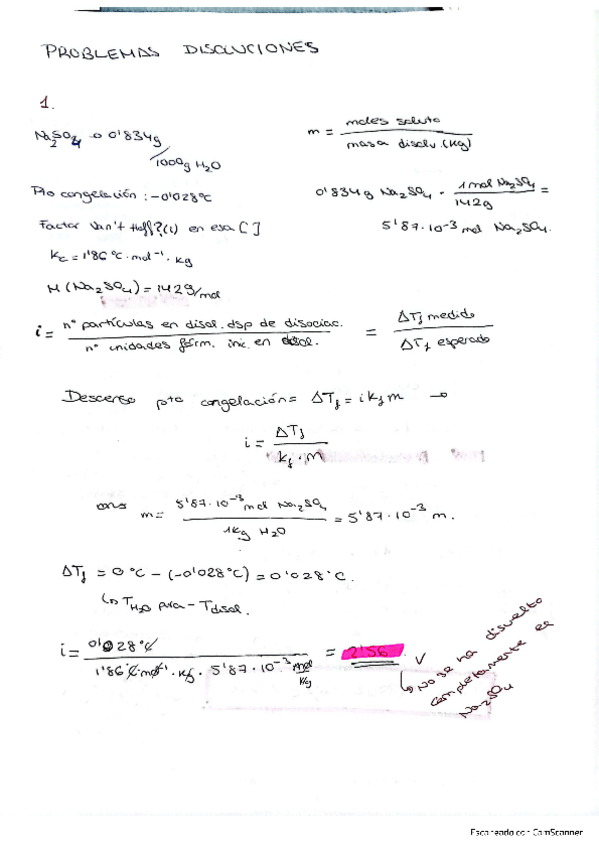 PROBLEMAS DISOLUCIONES
1.
Na2SO4 → 0'834g/1000g H2O
m = moles soluto / masa disolv. (kg)
Pto congelación: -0'028°C
0'834 g Na2SO4 · 1 mol Na2SO4 / 142g =
Factor Van't Hoff? (i) en esa [ ]
5'87·10⁻³ mol Na2SO4.
Kc = 1'86 °C·mol⁻¹·kg
M (Na2SO4) = 142g/mol
i = nº partículas en disol. dsp de disociac. / nº unidades fórm. inic. en disol. = ΔTf medido / ΔTf esperado
Descenso pto congelación = ΔTf = i kf m →
i = ΔTf / kf · m
m = 5'87·10⁻³ mol Na2SO4 / 1kg H2O = 5'87·10⁻³ m.
ΔTf = 0°C - (-0'028°C) = 0'028°C.
↳ TH2O pura - Tdisol.
i = 0'028°C / 1'86 °C·mol⁻¹·kg · 5'87·10⁻³ mol/kg = 2'56 √
↳ No se ha disuelto
completamente el
Na2SO4
Escaneado con CamScanner